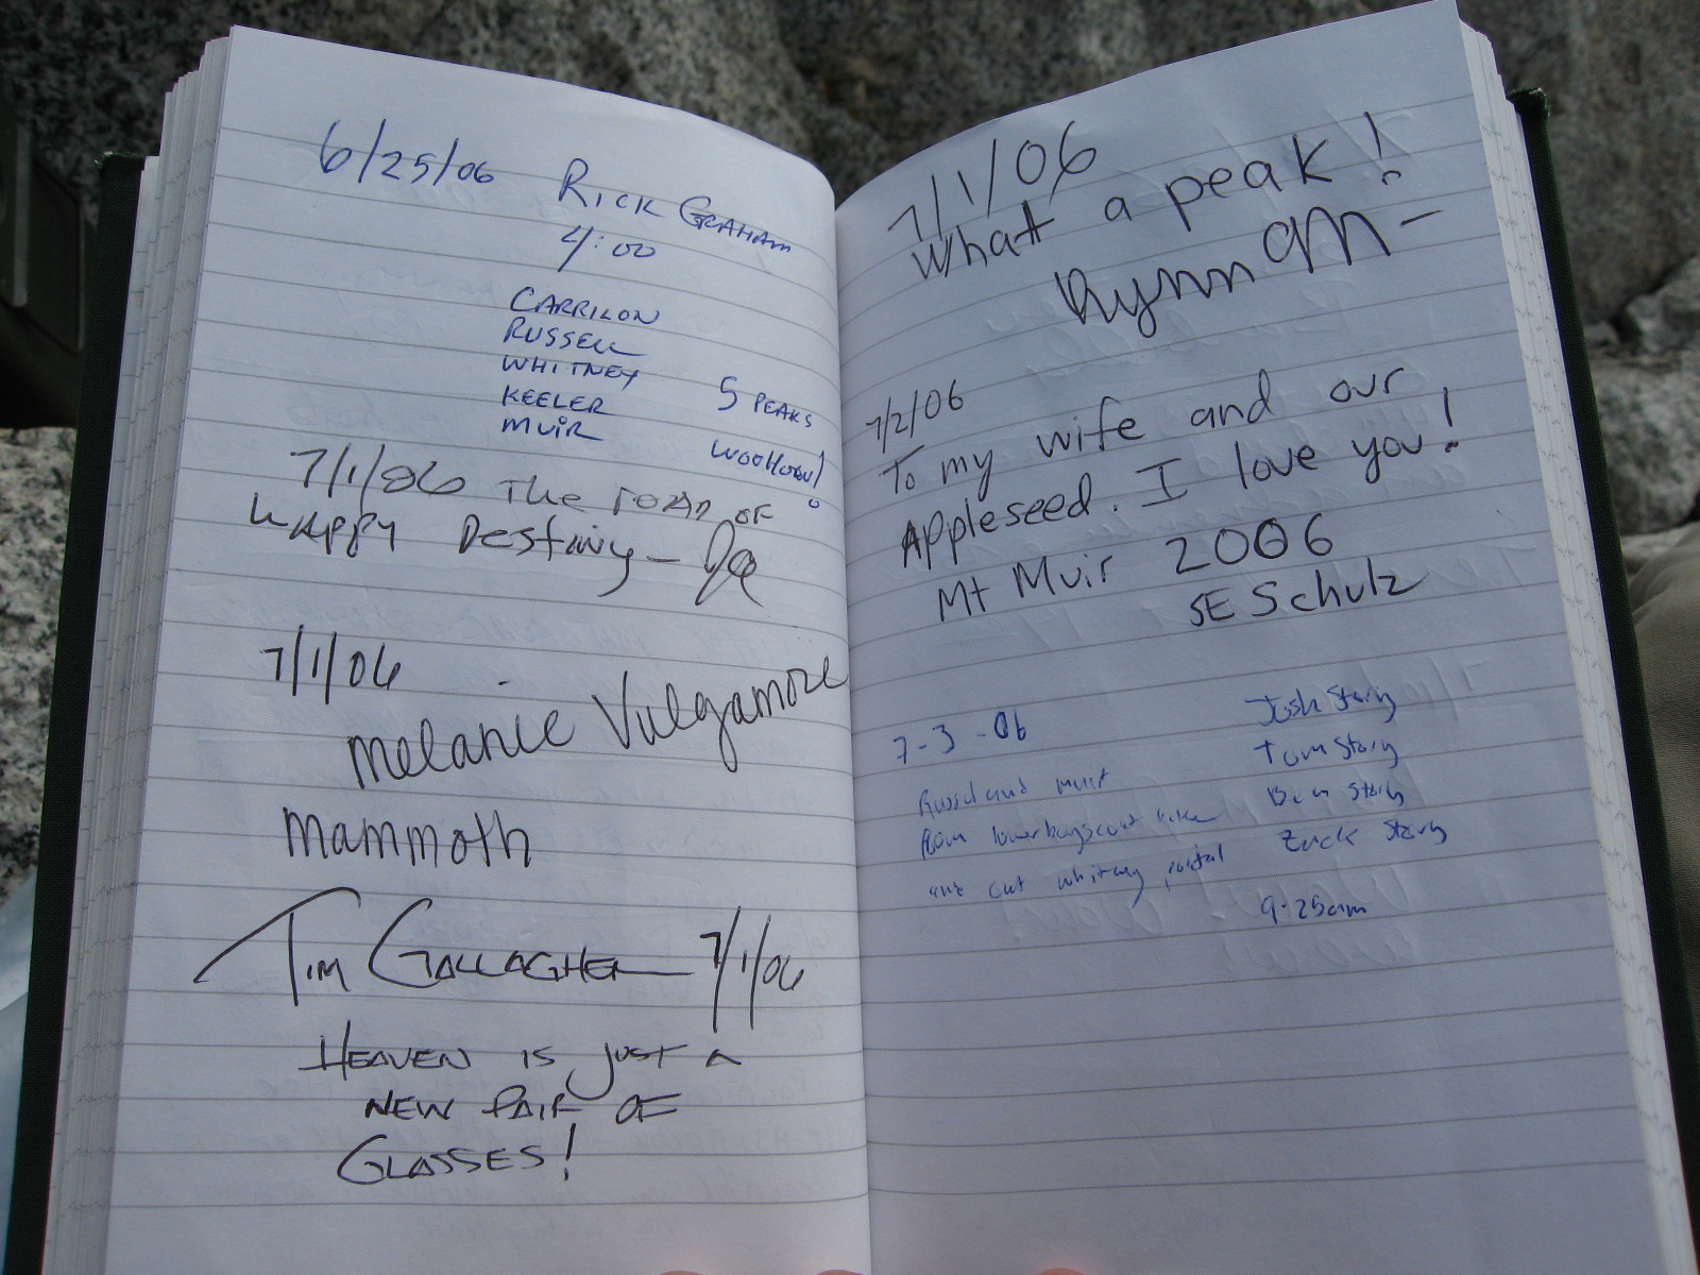 6/25/06 Rick Graham
4:00
Carrilon
Russell
Whitney
Keeler
Muir
5 Peaks
WooHooo!
7/1/06 The road of
Happy Destiny -
7/1/06
Melanie Vulgamore
Mammoth
Tim Gallagher 7/1/06
Heaven is just a
new pair of
Glasses!
7/1/06
What a peak!
Rynn
7/2/06
To my wife and our
Appleseed. I love you!
Mt Muir 2006
SE Schulz
7-3-06
Russel and muir
from lower boyscout lake
and out whitney portal
Josh Story
Tom Story
Ben Story
Zack Story
9:25am